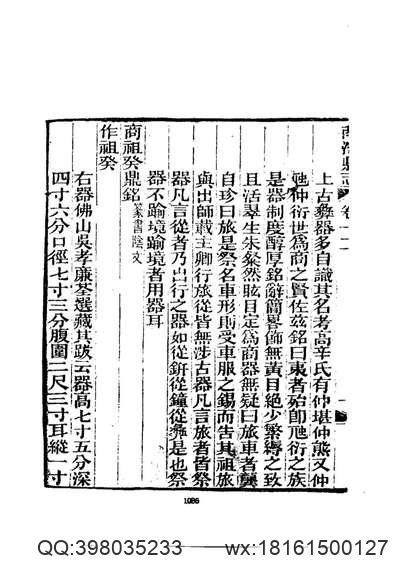 上古彝器多自識其名考高辛氏有仲堪仲熊又仲
虺仲衍世為商之賢佐茲銘曰夷者殆即虺衍之族
是器制度醇厚銘辭簡畧飾無黃目絕少繁縟之致
且活翠生朱燦然眩目定為商器無疑曰旅車者龔
自珍曰旅是祭名車形則受車服之錫而告其祖旅
與出師載主卿行旅從皆無涉古器凡言旅者皆祭
器凡言從者乃出行之器如從鈃從鐘從彝是也祭
器不踰境踰境者用器耳
商祖癸鼎銘 篆書陰文
作祖癸
右器佛山吳孝廉荃選藏其跋云器高七寸五分深
四寸六分口徑七寸三分腹圍二尺三寸耳縱一寸
1086
QQ:398035233 wx:18161500127